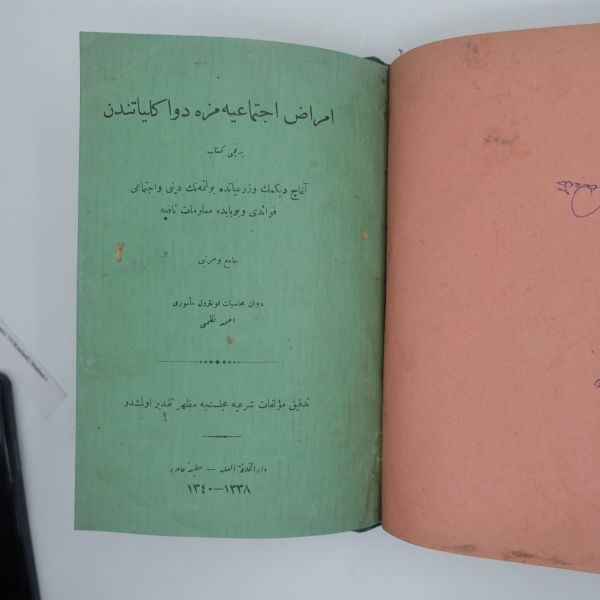 امراض اجتماعیه‌مزه دوا كلیاتندن
برنجی كتاب
آغاچ دیكمك وزرعیاتده بولنمه‌نك دینی واجتماعی
فوائدی وبوبابده معلومات نافعه
جامع ومرتبی
دیوان محاسبات قونترول مأموری
احمد نظمی
تدقیق مؤلفات شرعیه مجلسنجه مظهر تقدیر اولمشدر
دار الخلافة العلیه — مطبعهٔ عامره
١٣٣٨—١٣٤٠